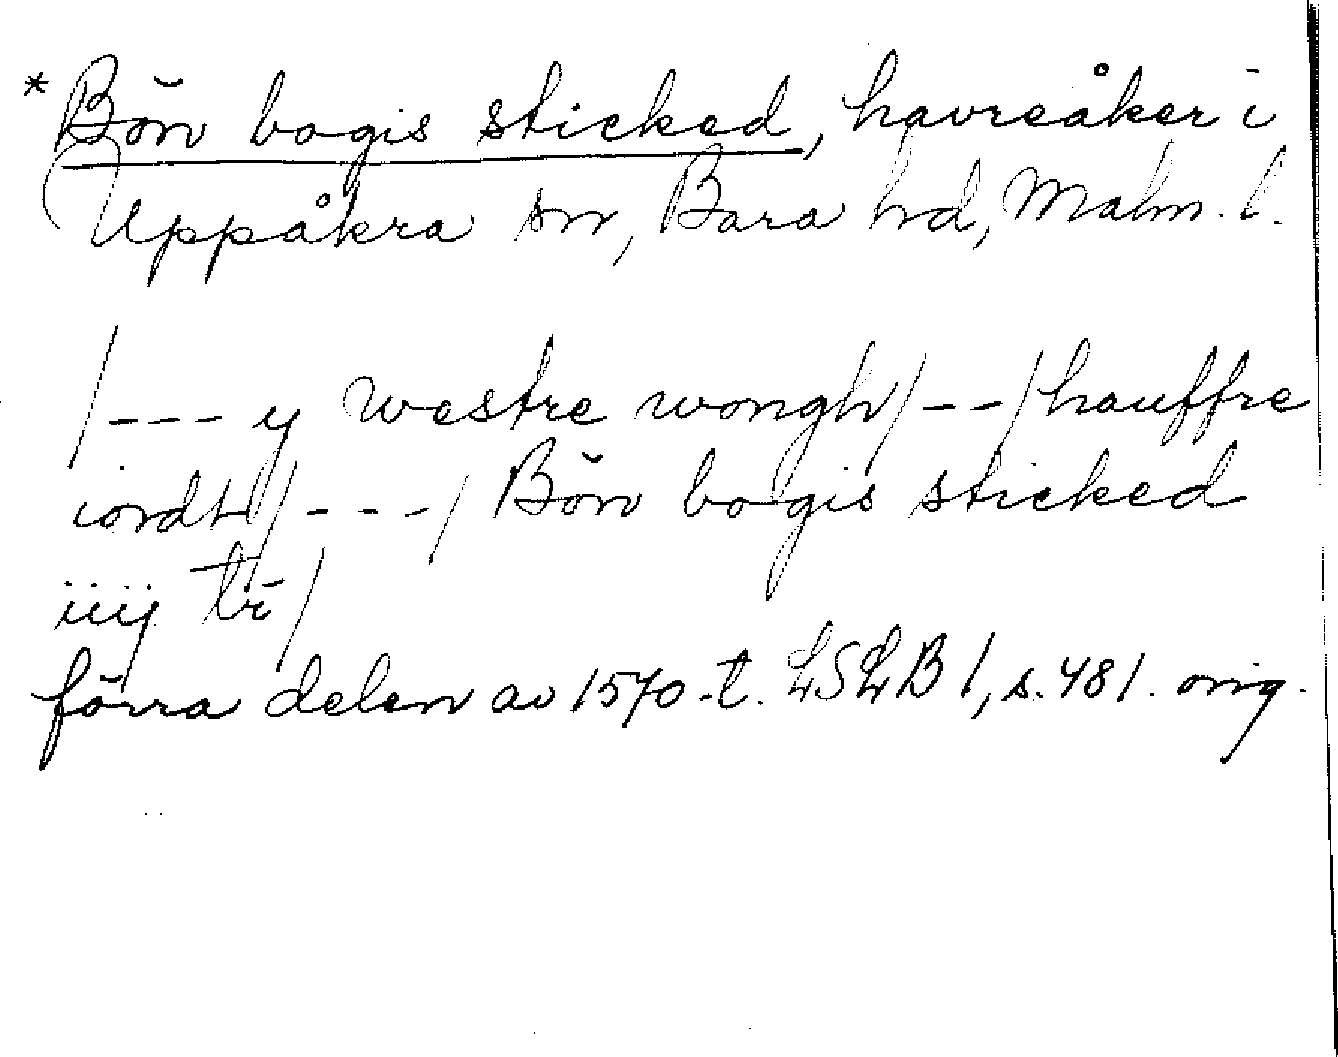 *Bŏn bogis sticked, havreåker i
Uppåkra sn, Bara hd, Malm. l.
/--- y westre wongh/--/hauffre
iordt/---/ Bŏn bogis sticked
iiij tr̄/
förra delen av 1570-t. LSLB 1, s. 481. orig.